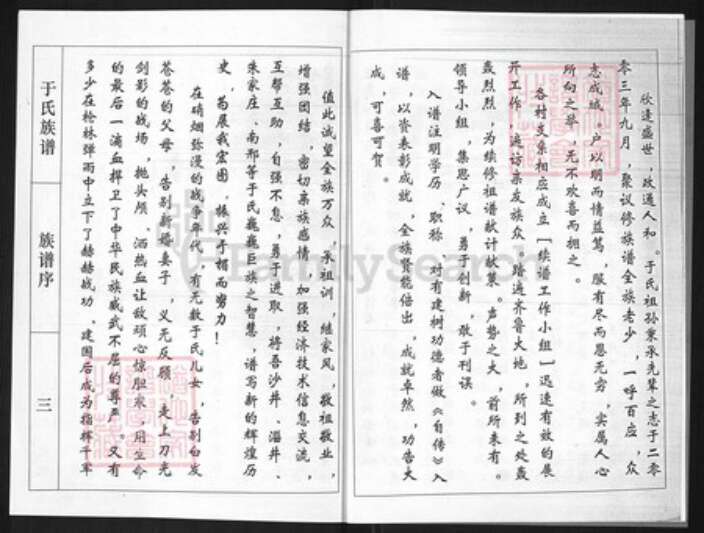 欣逢盛世，政通人和。于氏祖孙秉承先辈之志于二零
零三年九月，聚议修族谱全族老少，一呼百应，众
志成城。户以明而情益笃，服有尽而恩无穷，实属人心
所向之举，无不欢喜而拥之。
各村支系相应成立【续谱工作小组】迅速有效的展
开工作，遍访亲友族众，踏遍齐鲁大地，所到之处轰
轰烈烈，为续修祖谱献计献策。声势之大，前所未有。
领导小组，集思广议，勇于创新，敢于刊误。
入谱注明学历、职称，对有建树功德者做《自传》入
谱，以资表彰成就，全族贤能倍出，成就卓然，功告大
成，可喜可贺。
值此诚望全族万众，承祖训，继家风，敬祖敬业，
增强团结，密切亲族感情，加强经济技术信息交流，
互帮互助，自强不息，勇于进取，将吾沙井、淄井、
朱家庄、南邢等于氏巍巍巨族之智慧，谱写新的辉煌历
史，苟展我宏图，振兴于楣而努力！
在硝烟弥漫的战争年代，有无数于氏儿女，告别白发
苍苍的父母，告别新婚妻子，义无反顾，走上刀光
剑影的战场，抛头颅、洒热血让敌顽心惊胆寒，用生命
的最后一滴血捍卫了中华民族威武不屈的尊严。又有
多少在枪林弹雨中立下了赫赫战功、建国后成为指挥千军
于氏族谱
族谱序
三
FamilySearch